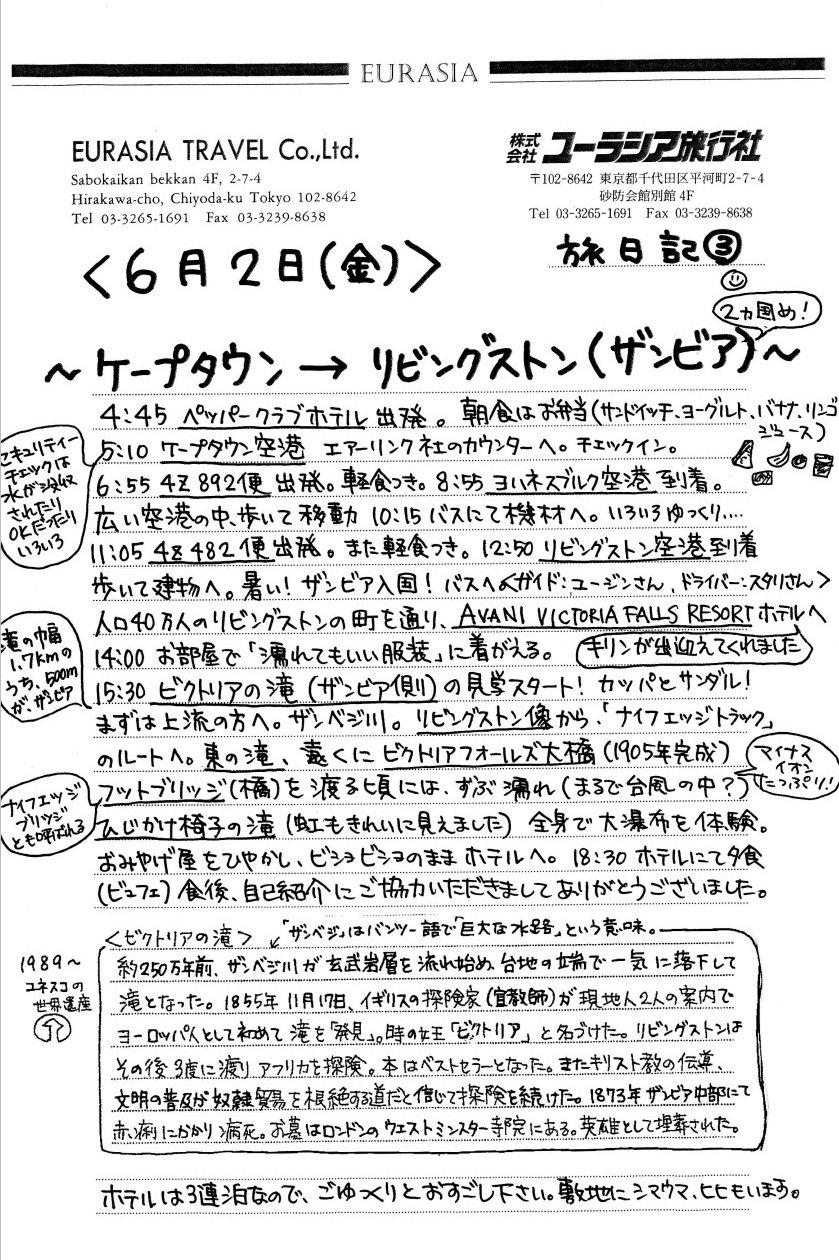 EURASIA
EURASIA TRAVEL Co.,Ltd.
Sabokaikan bekkan 4F, 2-7-4
Hirakawa-cho, Chiyoda-ku Tokyo 102-8642
Tel 03-3265-1691 Fax 03-3239-8638
株式会社 ユーラシア旅行社
〒102-8642 東京都千代田区平河町2-7-4
砂防会館別館 4F
Tel 03-3265-1691 Fax 03-3239-8638
旅日記③
<6月2日(金)>
2ヵ国め!
~ケープタウン→リビングストン(ザンビア)~
4:45 ペッパークラブホテル出発。朝食はお弁当(サンドイッチ、ヨーグルト、バナナ、リンゴ
ジュース)
5:10 ケープタウン空港 エアーリンク社のカウンターへ。チェックイン。
セキュリティー
チェックは
水が没収
されたり
OKだったり
いろいろ
6:55 4Z892便出発。軽食つき。8:55 ヨハネスブルク空港到着。
広い空港の中、歩いて移動 10:15 バスにて機材へ。いろいろゆっくり....
11:05 4Z482便出発。また軽食つき。12:50 リビングストン空港到着
歩いて建物へ。暑い!ザンビア入国!バスへ<ガイド:ユージンさん、ドライバー:スタリさん>
人口40万人のリビングストンの町を通り、AVANI VICTORIA FALLS RESORTホテルへ
14:00 お部屋で「濡れてもいい服装」に着がえる。
キリンが出迎えてくれました
滝の幅
1.7kmの
うち、500m
が、ザンビア
15:30 ビクトリアの滝(ザンビア側)の見学スタート!カッパとサンダル!
まずは上流の方へ。ザンベジ川。リビングストン像から、「ナイフエッジトラック」
のルートへ。東の滝、遠くにビクトリアフォールズ大橋(1905年完成)
マイナス
イオン
たっぷり!
フットブリッジ(橋)を渡る頃には、ずぶ濡れ(まるで台風の中?)
ナイフエッジ
ブリッジ
とも呼ばれる
ひじかけ椅子の滝(虹もきれいに見えました)全身で大瀑布を体験。
おみやげ屋をひやかし、ビショビショのままホテルへ。18:30 ホテルにて夕食
(ビュフェ)食後、自己紹介にご協力いただきましてありがとうございました。
<ビクトリアの滝>
「ザンベジ」はバンツー語で「巨大な水路」という意味。
1989~
ユネスコの
世界遺産
約250万年前、ザンベジ川が玄武岩層を流れ始め、台地の端で一気に落下して
滝となった。1855年11月17日、イギリスの探険家(宣教師)が現地人2人の案内で
ヨーロッパ人として初めて滝を「発見」。時の女王「ビクトリア」と名づけた。リビングストンは
その後3度に渡りアフリカを探険。本はベストセラーとなった。またキリスト教の伝導、
文明の普及が奴隷貿易を根絶する道だと信じて探険を続けた。1873年ザンビア中部にて
赤痢にかかり病死。お墓はロンドンのウエストミンスター寺院にある。英雄として埋葬された。
ホテルは3連泊なので、ごゆっくりとおすごし下さい。敷地にシマウマ、ヒヒもいます。